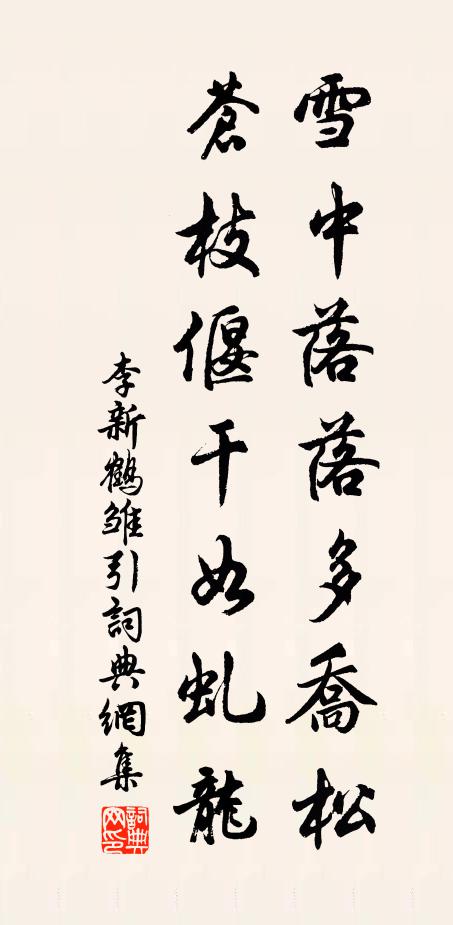 雪中落落多喬松
蒼枝偃干如虬龍
李新鶴雛引詞典網集
詞典
网印